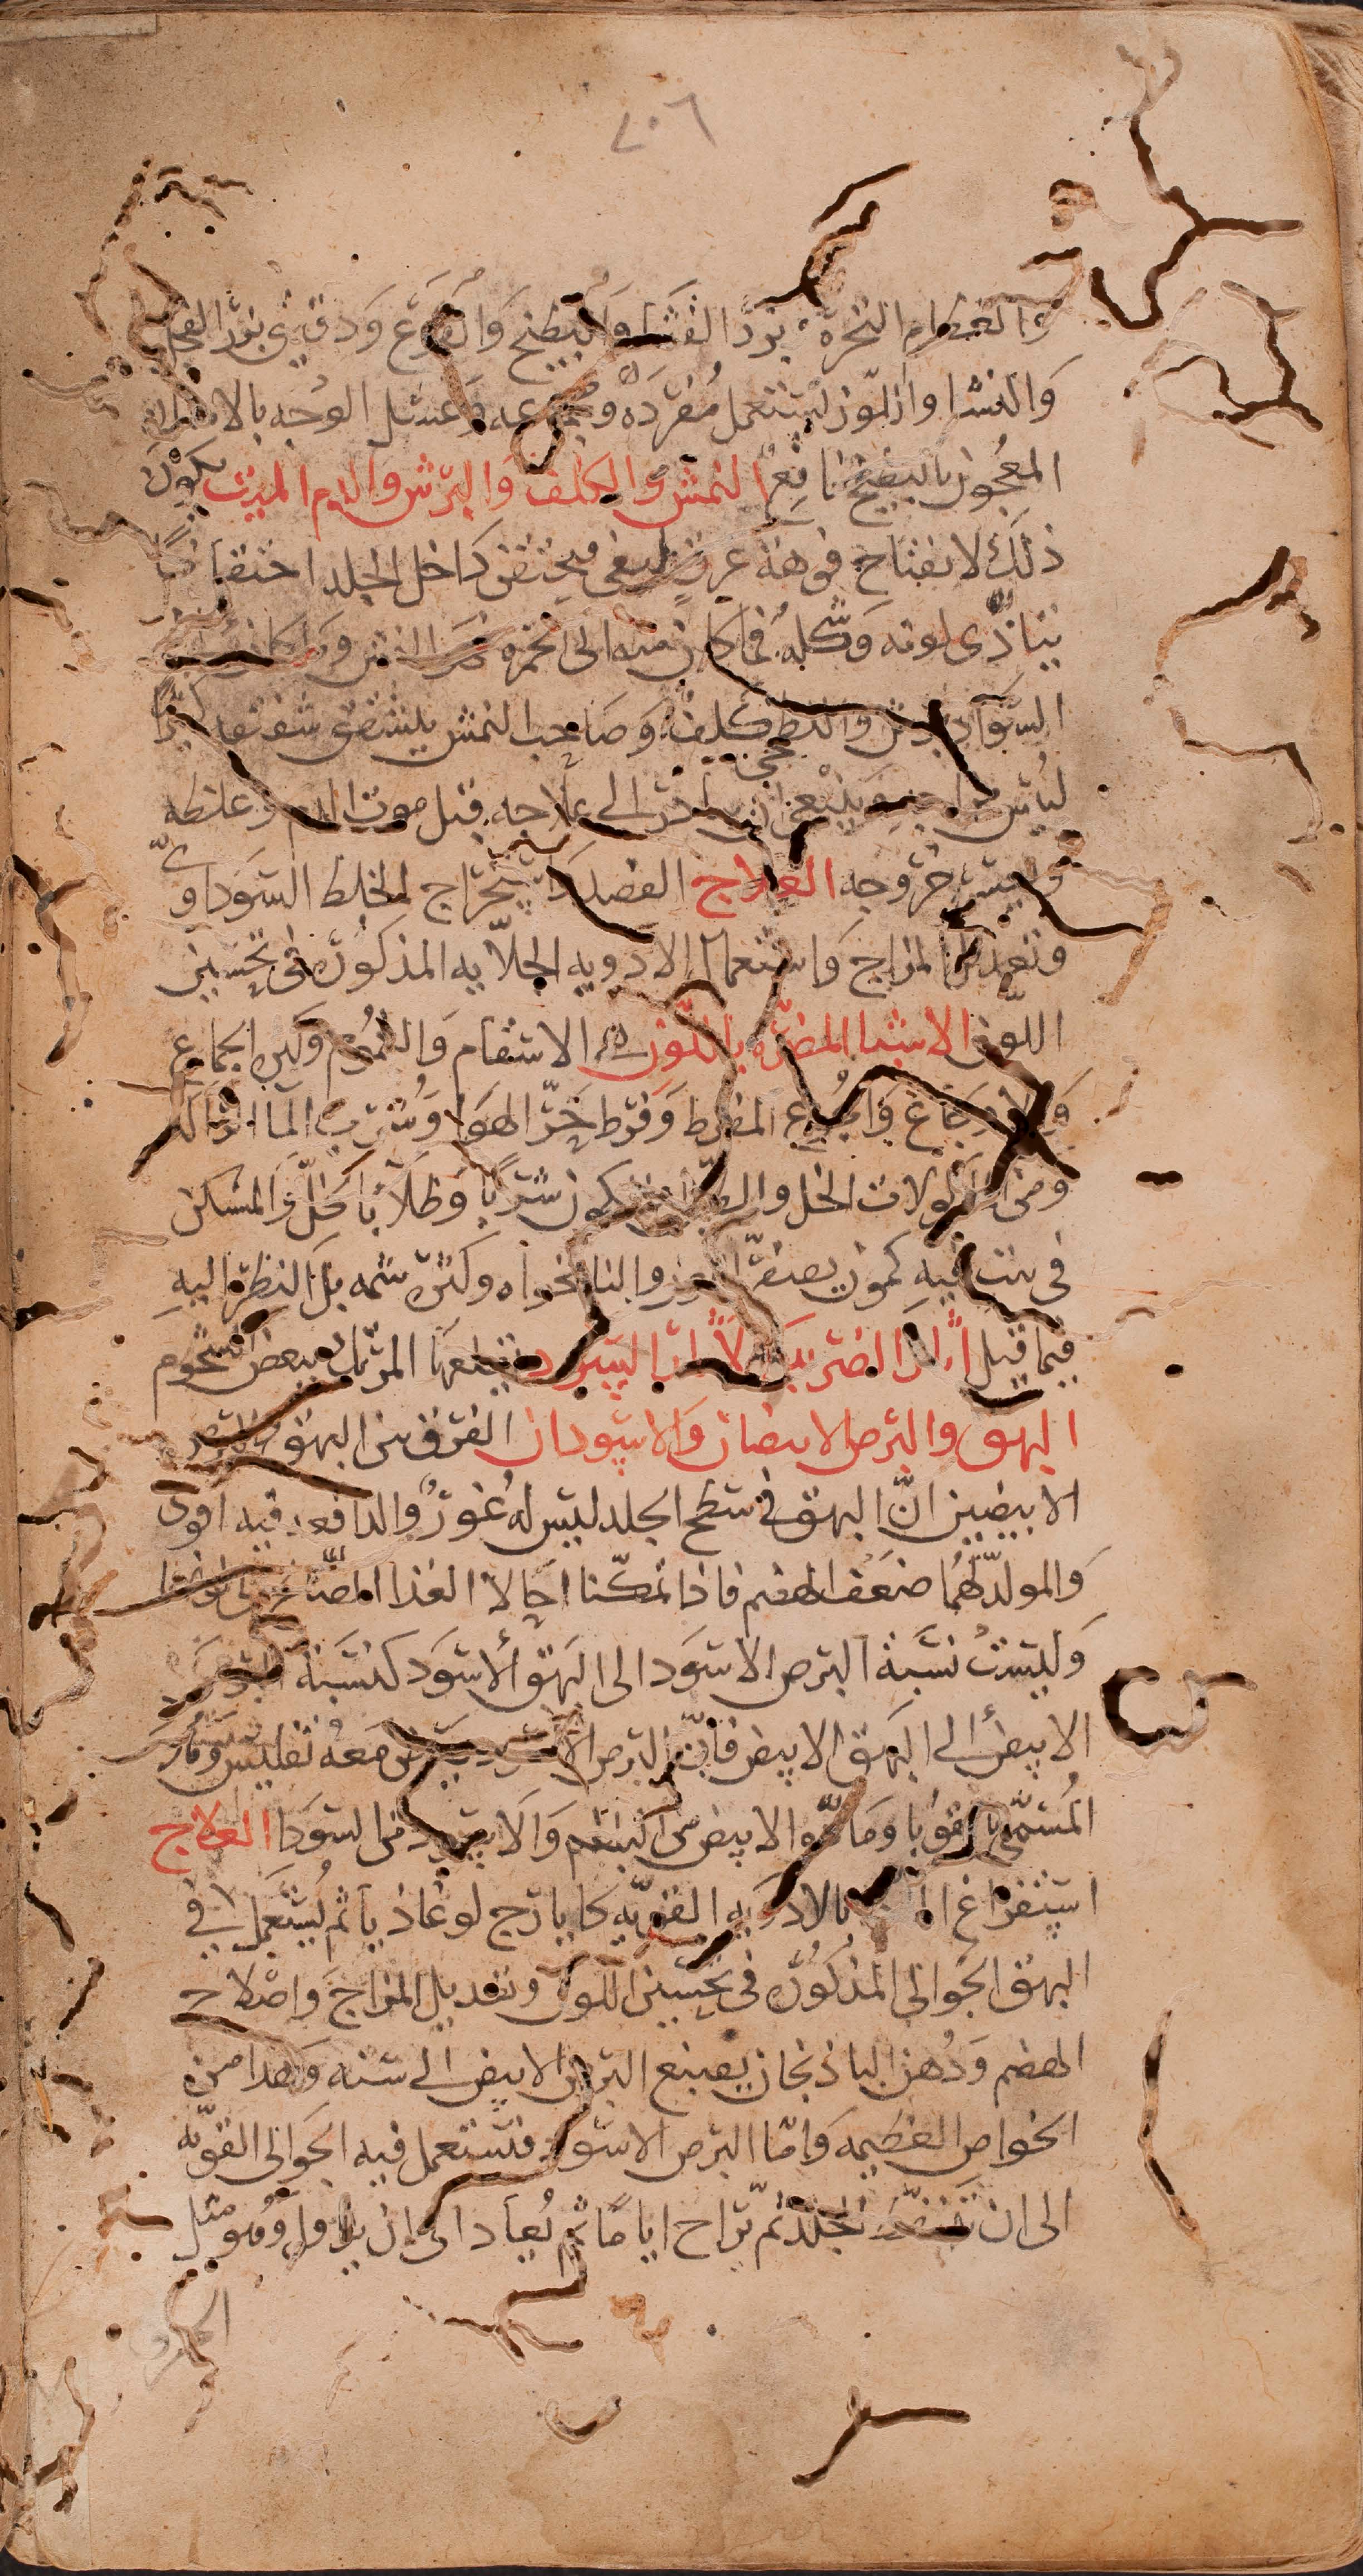 ٧٠٦
والعظام النخرة بزر القثا والبطيخ والقرع ودقيق بزر الفجل
والنشا واللوز تستعمل مفردة ومجموعه وغسل الوجه بالاشنان
المعجون بالبطيخ نافع النمش والكلف والبرش والدم الميت يكون
ذلك لانفتاح فوهة عرق فيحتقن داخل الجلد احتقانا
يتأدى لونه وشكله فما كان منه الى الحمرة النمش وما كان
السواد برش والنط كلف وصاحب النمش يتشقق شفتاه كثيرا
ليبس مزاجه وينبغي ان يبادر الى علاجه قبل موت الدم وغلظه
خروجه العلاج الفصد لاستخراج الخلط السوداوي
وتعديل المزاج واستعمال الادويه الجلايه المذكورة في تحسين
اللون الاشيا المضره باللون الاسقام والغموم وكثره الجماع
والاوجاع والجوع المفرط وفرط حر الهوا وشرب الما الراكد
ومن الماكولات الخل والطين والكمون شربا وطلا بالخل والمسكن
في بيت فيه كمون يصفر اللون والنانخواه وكثره شمه بل النظر اليه
فيما قيل اثار الضربه والاثار السود يقلعها المرتك ببعض الشحوم
البهق والبرص الابيضان والاسودان الفرق بين البهق والبرص
الابيضين ان البهق في سطح الجلد ليس له غور والدافعه فيه اقوى
والمولد لهما ضعف الهضم فاذا تمكنا احالا الغذا
وليست نسبة البرص الاسود الى البهق الاسود كنسبة البرص
الابيض الى البهق الابيض فان البرص الاسود معه تفليس وهو
المسمى بالقوبا ومادة الابيض من البلغم والاسود من السودا العلاج
استفراغ بالادويه القويه كايارج لوغاذيا ثم يستعمل في
البهق الجوالي المذكوره في تحسين اللون وتعديل المزاج واصلاح
الهضم ودهن الباذنجان يصبغ البرص الابيض الى سنه وهذا من
الخواص العظيمه واما البرص الاسود فتستعمل فيه الجوالي القويه
الى ان الجلد ثم تراح اياما ثم يعاد الى ان يزول وهو مثل